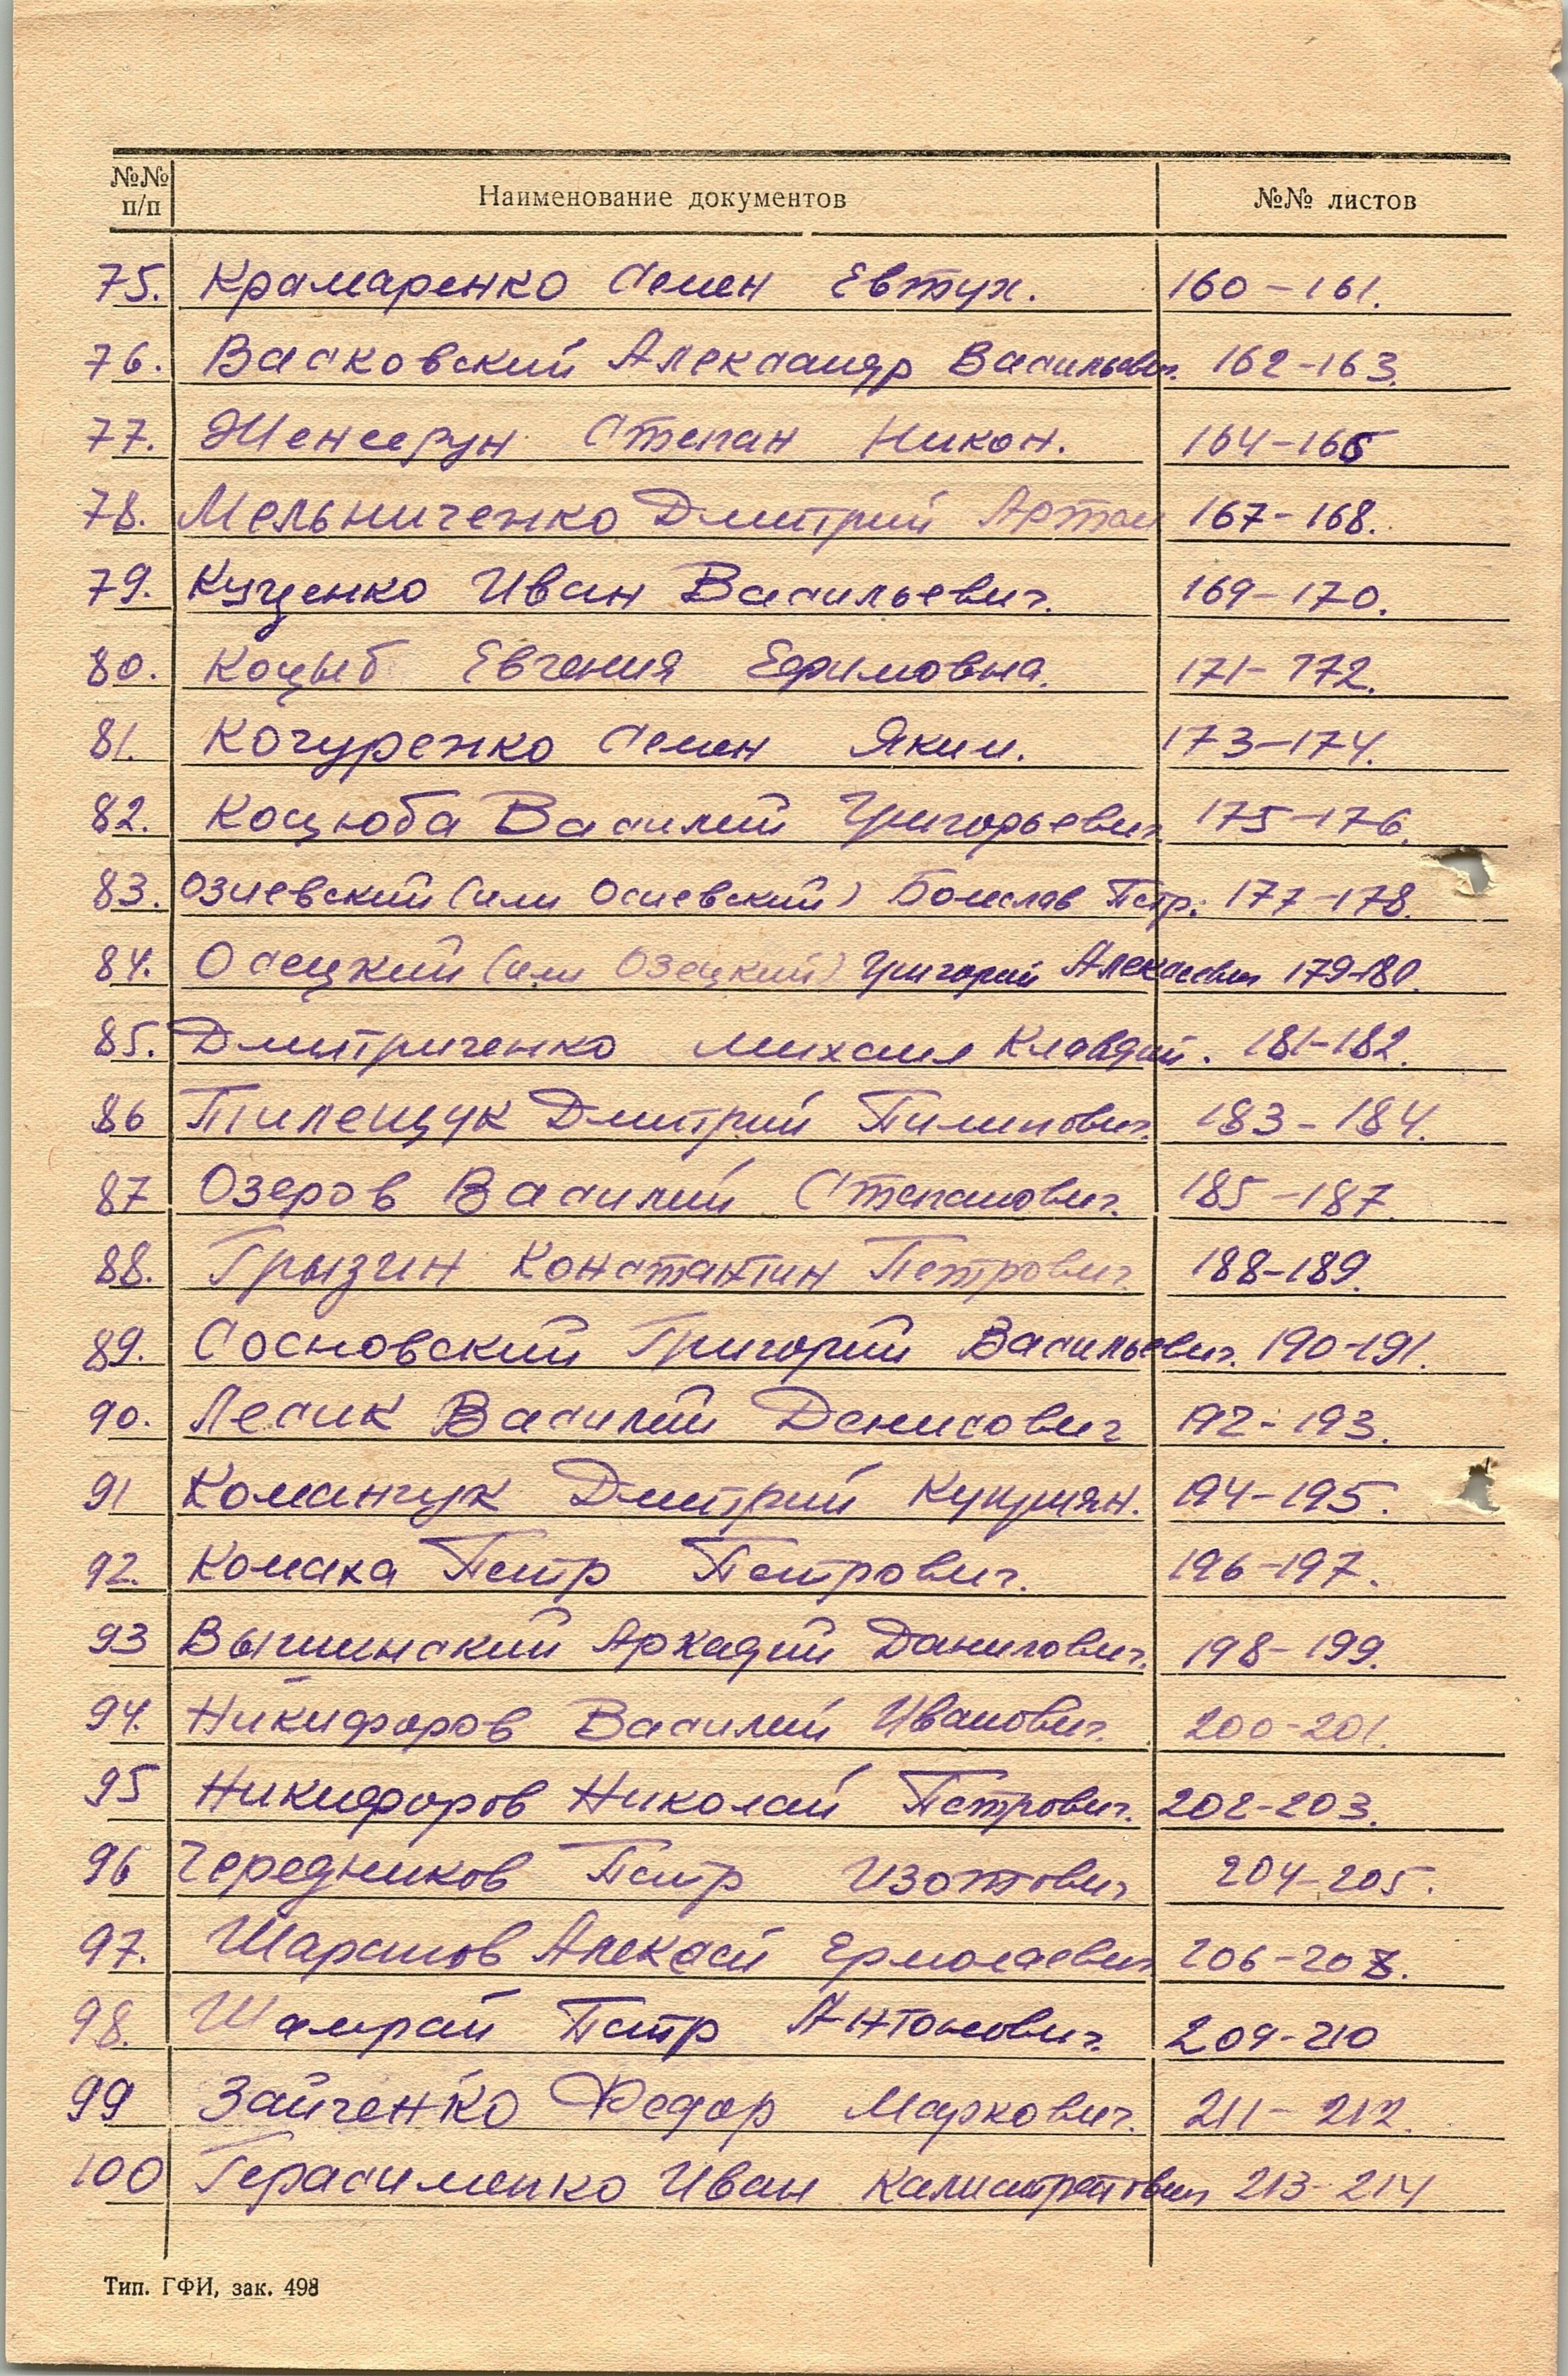 №№ п/п Наименование документов №№ листов
75. Крамаренко Семен Евтух. 160-161.
76. Васковский Александр Васильевич. 162-163.
77. Степан Никон. 164-166
78. Мельниченко Дмитрий Артем 167-168.
79. Куценко Иван Васильевич. 169-170.
80. Коцыб Евгения Ефимовна. 171-172.
81. Кочуренко Семен Яким. 173-174.
82. Коцюба Василий Григорьевич. 175-176.
83. Озиевский (или Осиевский) Болеслав Петр. 177-178.
84. Осецкий (или Озецкий) Григорий Алексеевич 179-180.
85. Дмитриченко Михаил Клавдий. 181-182.
86 Пилещук Дмитрий Пилипович. 183-184.
87 Озеров Василий Степанович. 185-187.
88. Грызин Константин Петрович. 188-189.
89. Сосновский Григорий Васильевич. 190-191.
90. Лесик Василий Денисович 192-193.
91 Команчук Дмитрий Куприян. 194-195.
92. Комаха Петр Петрович. 196-197.
93 Вышинский Аркадий Данилович. 198-199.
94. Никифоров Василий Иванович. 200-201.
95 Никифоров Николай Петрович. 202-203.
96 Чередников Петр Изотович 204-205.
97. Шарапов Алексей Ермолаевич 206-208.
98. Шамрай Петр Антонович. 209-210
99 Зайченко Федор Маркович. 211-212.
100 Герасименко Иван Калистратович 213-214
Тип. ГФИ, зак. 498